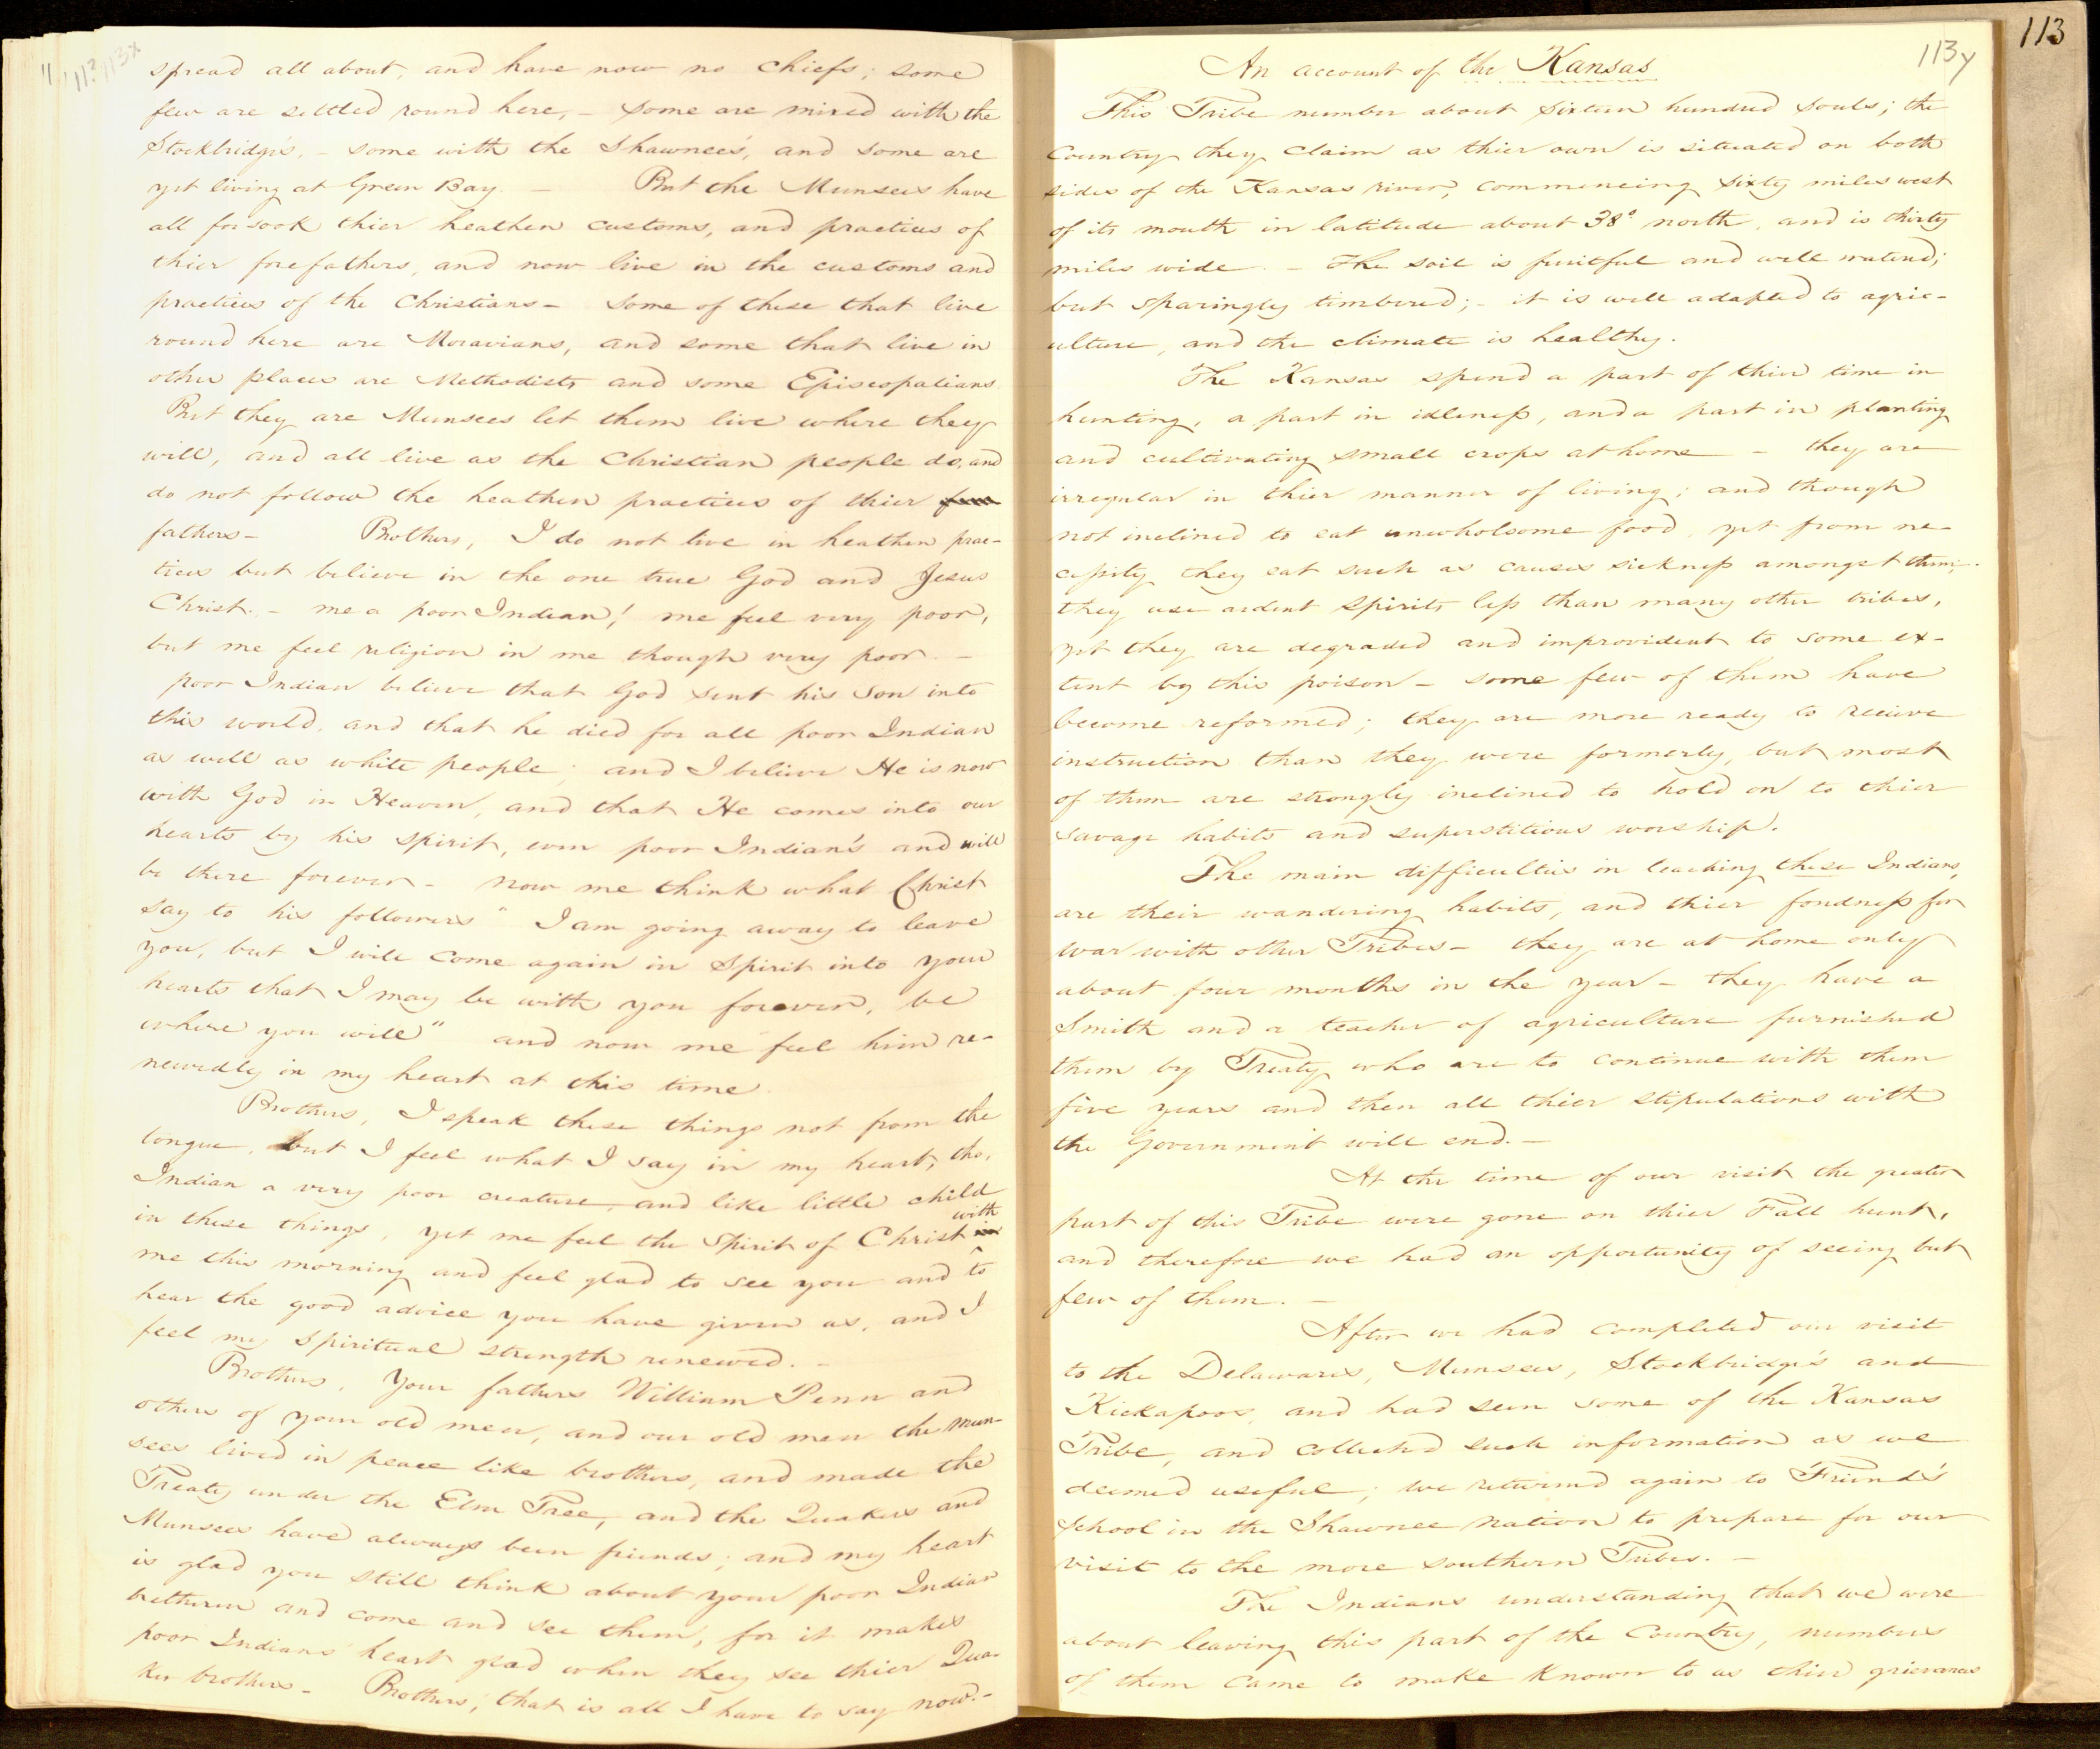 113x
spread all about, and have now no chiefs; some
few are settled round here, - some are mixed with the
Stockbridge's, - some with the Shawnee's, and some are
yet living at Green Bay. - But the Munsees have
all forsook thier heathen customs, and practices of
thier forefathers, and now live in the customs and
practices of the Christians - Some of these that live
round here are Moravians, and some that live in
other places are Methodists and some Episcopalians
But they are Munsees let them live where they
will, and all live as the Christian people do, and
do not follow the heathen practices of thier
fathers - Brothers, I do not live in heathen prac-
tices but believe in the one true God and Jesus
Christ. - me a poor Indian! me feel very poor,
but me feel religion in me though very poor. -
poor Indian believe that God sent his Son into
this world, and that he died for all poor Indian
as well as white people; and I believe He is now
with God in Heaven, and that He comes into our
hearts by his Spirit, even poor Indian's and will
be there forever - now me think what Christ
say to his followers "I am going away to leave
you, but I will come again in Spirit into your
hearts that I may be with you forever, be
where you will" and now me feel him re-
newedly in my heart at this time.
Brothers, I speak these things not from the
tongue, but I feel what I say in my heart, tho,
Indian a very poor creature, and like little child
in these things, yet me feel the Spirit of Christ in with
me this morning and feel glad to see you and to
hear the good advice you have given us, and I
feel my Spiritual strength renewed. -
Brothers, Your fathers William Penn and
others of your old men, and our old men the Mun-
sees lived in peace like brothers, and made the
Treaty under the Elm Tree, and the Quakers and
Munsees have always been friends; and my heart
is glad you still think about your poor Indian
bretheren and come and see them, for it makes
poor Indians heart glad when they see thier Qua-
ker brothers - Brothers, that is all I have to say now. -
113
113y
An account of the Kansas
This Tribe number about Sixteen hundred souls; the
Country they claim as thier own is situated on both
sides of the Kansas river, commencing sixty miles west
of its mouth in latitude about 38° north, and is thirty
miles wide. - The soil is fruitful and well watered;
but sparingly timbered; - it is well adapted to agric-
ulture, and the climate is healthy.
The Kansas spend a part of thier time in
hunting, a part in idleness, and a part in planting
and cultivating small crops at home - they are
irregular in thier manner of living; and though
not inclined to eat unwholsome food, yet from ne-
cessity they eat such as causes sickness amongst them;
they use ardent spirits less than many other tribes,
yet they are degraded and improvident to some ex-
tent by this poison - some few of them have
become reformed; they are more ready to receive
instruction than they were formerly, but most
of them are strongly inclined to hold on to thier
savage habits and superstitious worship.
The main difficulties in teaching these Indians,
are their wandering habits, and thier fondness for
war with other Tribes - they are at home only
about four months in the year - they have a
Smith and a teacher of agriculture furnished
them by Treaty who are to continue with them
five years and then all thier stipulations with
the Government will end. -
At the time of our visit the greater
part of this Tribe were gone on thier Fall hunt,
and therefore we had an opportunity of seeing but
few of them. -
After we had completed our visit
to the Delawares, Munsees, Stockbridge's and
Kickapoos, and had seen some of the Kansas
Tribe, and collected such information as we
deemed useful; we returned again to Friend's
School in the Shawnee nation to prepare for our
visit to the more southern Tribes. -
The Indians understanding that we were
about leaving this part of the Country, numbers
of them came to make known to us thier grievances